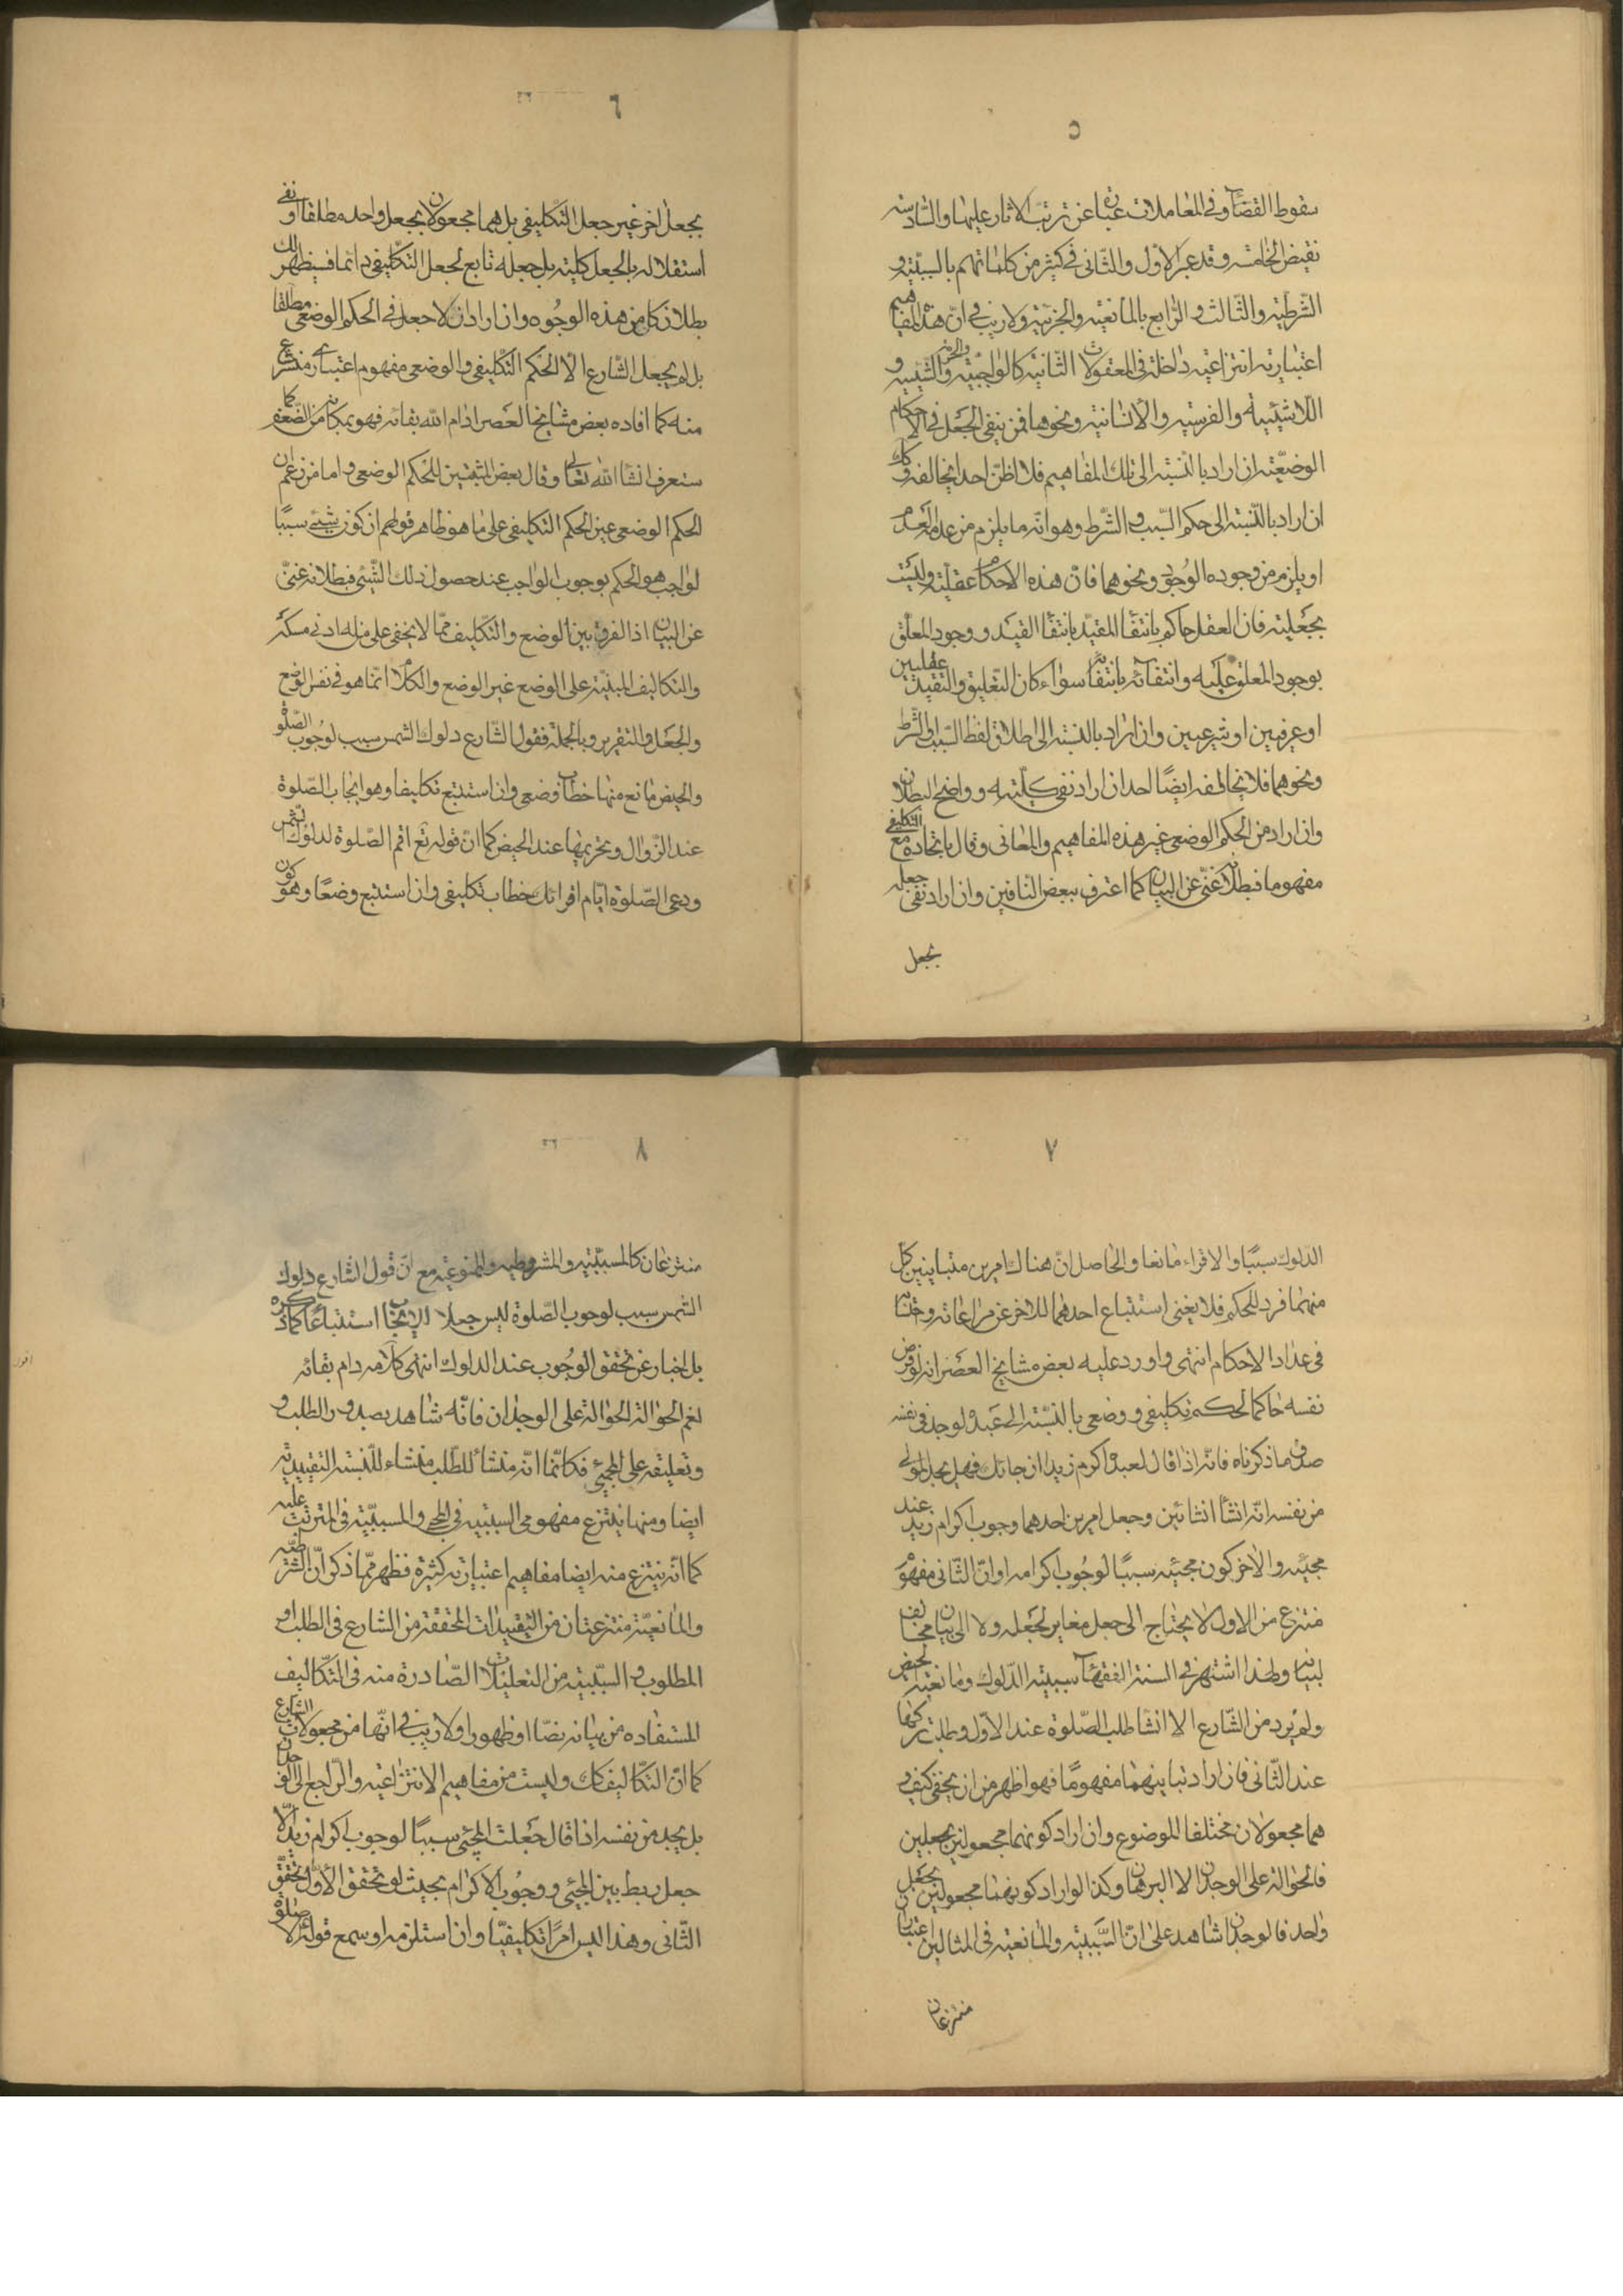 ٥
سقوط القضاء وفى المعاملات عبارة عن ترتب الاثار عليها والسادسة
نقيض الخامسه وقد عبر الاول والثانى فى كثير من كلماتهم بالسببيّه و
الشرطيه والثالث والرابع بالمانعيه والجزئيه ولا ريب فى ان هذه المفاهيم
اعتباريه انتزاعيه داخلة فى المعقولات الثانيه كالواجبيّه والحرمه والشيئيه و
اللاشيئية والفرسيه والانسانيه ونحوها فمن ينفى الجعل فى الاحكام
الوضعيّه ان اراد بالنسبة الى تلك المفاهيم فلا اظن احدا يخالفه وكك
ان اراد بالنسبة الى حكم السبب والشرط وهو انه ما يلزم من عدمه العدم
او يلزم من وجوده الوجود ونحوهما فان هذه الاحكام عقليّة وليست
بجعليته فان العقل حاكم بانتفاء المقيد بانتفاء القيد ووجود المعلق
بوجود المعلق عليه وانتفائه بانتفائه سواء كان التعليق والتقييد عقليين
او عرفيين او شرعيين وان اراد بالنسبة الى اطلاق لفظ السبب والشرط
ونحوهما فلا يخالفه ايضًا احد ان اراد نفى كليته وواضح البطلان
وان اراد من الحكم الوضعى غير هذه المفاهيم والمعانى وقال باتحاده مع التكليفى
مفهوما فبطلانه غنى عن البيان كما اعترف ببعض النافين وان اراد نفى جعله
بجعل
٦
بجعل اخر غير جعل التكليفى بل هما مجعولان بجعل واحد مطلقا او نفى
استقلاله بالجعل كليته بل جعله تابع لجعل التكليفى دائما فسيظهر لك
بطلان كل من هذه الوجوه وان اراد ان لا جعل فى الحكم الوضعى مطلقا
بل لم يجعل الشارع الا الحكم التكليفى والوضعى مفهوم اعتبارى منتزع
منه كما افاده بعض مشايخنا العصر ادام الله بقائه فهو بمكانه من الضعف كما
ستعرف انشاالله تعالى وقال بعض المثبتين للحكم الوضعى واما من زعم ان
الحكم الوضعى عين الحكم التكليفى على ما هو ظاهر قولهم ان كون شيئ سببًا
لواجب هو الحكم بوجوب الواجب عند حصول ذلك الشيئ فبطلانه غنى
عن البيان اذ الفرق بين الوضع والتكليف مما لا يخفى على من له ادنى مسكه
والتكاليف المبنيّة على الوضع غير الوضع والكلام انما هو فى نفس الوضع
والجعل والتقرير وبالجملة فقول الشارع دلوك الشمس سبب لوجوب الصلوة
والحيض مانع منها خطاب وضعى وان استتبع تكليفا وهو ايجاب الصلوة
عند الزوال وتحريمها عند الحيض كما ان قوله تع اقم الصلوة لدلوك الشمس
ودعى الصلوة ايام اقرائك خطاب تكليفى وان استتبع وضعًا وهو كون
٧
الدلوك سببًا والاقراء مانعا والحاصل ان هناك امرين متباينين كل
منهما فرد للحكم فلا يغنى استتباع احدهما للاخر عن مراعاته وحسابه
فى عداد الاحكام انتهى واورد عليه بعض مشايخ العصر انه لو فرض
نفسه حاكما لحكم تكليفى ووضعى بالنسبة الى عبده لوجد فى نفسه
صدق ما ذكرناه فانه اذا قال لعبده اكرم زيدا ان جائك فهل يجد المولى
من نفسه انه انشأ انشائين وجعل امرين احدهما وجوب اكرام زيد عند
مجيئه والاخر كون مجيئه سببًا لوجوب اكرامه او ان الثانى مفهوم
منتزع من الاول لا يحتاج الى جعل مغاير لجعله ولا الى بيان مخالف
لبيانه ولهذا اشتهر فى السنة الفقهاء سببيته الدلوك ومانعيته الحيض
ولم يرد من الشارع الا انشا طلب الصلوة عند الاول وطلب تركها
عند الثانى فان اراد تباينهما مفهومًا فهو اظهر من ان يخفى كيف و
هما مجعولان مختلفا الموضوع وان اراد كونهما مجعولين بجعلين
فالحواله على الوجدان لا البرهان وكذا لو اراد كونهما مجعولين بجعل
واحد فالوجدان شاهد على ان السببيته والمانعيه فى المثالين اعتباران
منتزعان
٨
منتزعان كالمسببيّه والمشروطيه والممنوعيه مع ان قول الشارع دلوك
الشمس سبب لوجوب الصلوة ليس جعلا للايجاب استتباعًا كما ذكره
بل اخبار عن تحقق الوجوب عند الدلوك انتهى كلامه دام بقائه
نعم الحوالة الحوالة على الوجدان فانه شاهد بصدور الطلب و
وتعليقه على المجيئ فكانما انه منشأ للطلب منشاء للنسبة التقييديه
ايضا ومنها ينتزع مفهومى السببيه فى المجيئ والمسببيّة فى المترتب عليه
كما انه ينتزع منه ايضا مفاهيم اعتباريه كثيرة فظهر مما ذكر ان الشرطيه
والمانعيّة منتزعتان من التقييدات المحققة من الشارع فى الطلب او
المطلوب والسببيه من التعليقات الصادرة منه فى التكاليف
المستفاده من بيانه نصّا او ظهورا ولا ريب فى انها من مجعولات الشارع
كما ان التكاليف كك وليست من مفاهيم الانتزاعيه والراجع الى الوجدان
بل يجد من نفسه اذا قال جعلت المجيئ سببًا لوجوب اكرام زيد الا
جعل ربط بين المجيئ ووجوب الاكرام بحيث لو تحقق الاول تحقق
الثانى وهذا ليس امرًا تكليفيّا وان استلزمه او سمع قوله لا صلوة